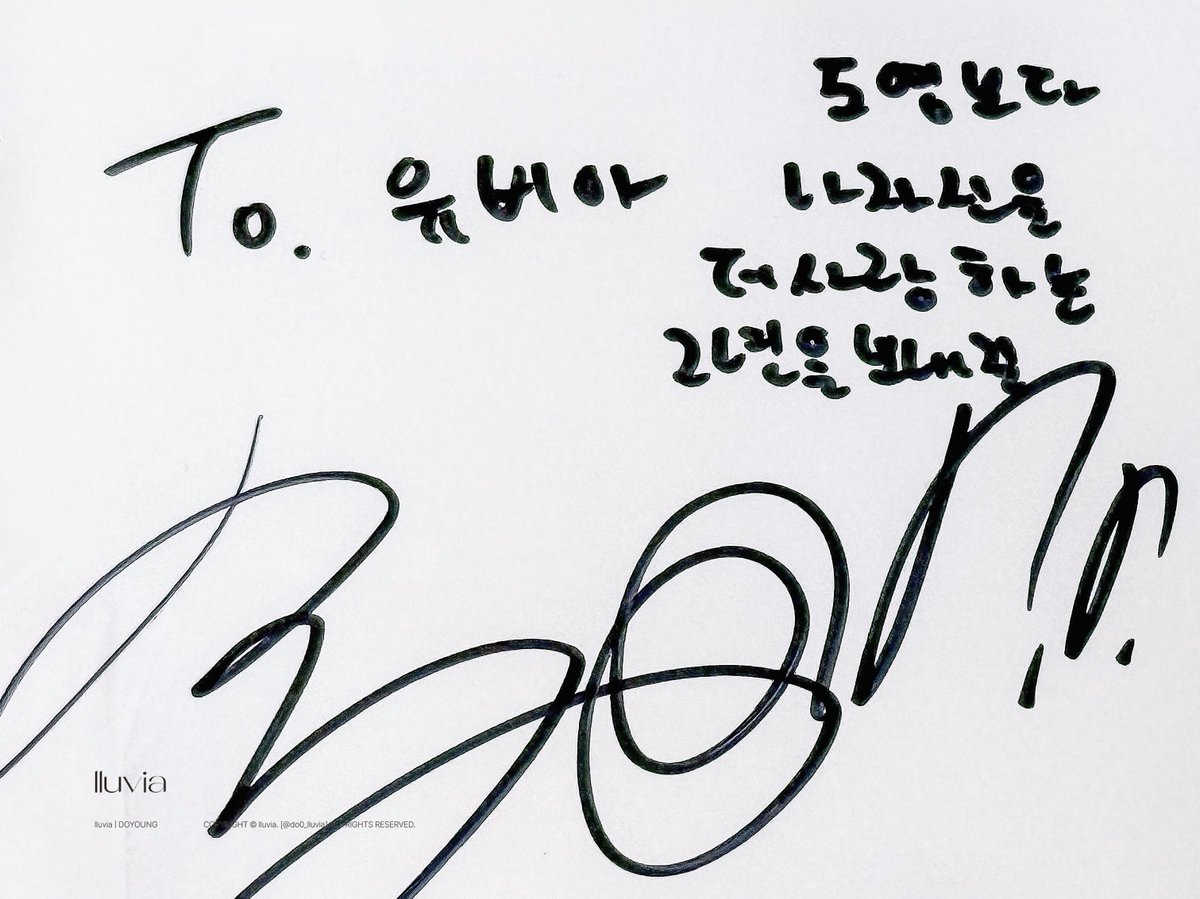 To. 유비아
도영보다
나자신을
더 사랑하는
보내길
lluvia
lluvia | DOYOUNG
COPYRIGHT © lluvia. [@do0_lluvia] RIGHTS RESERVED.